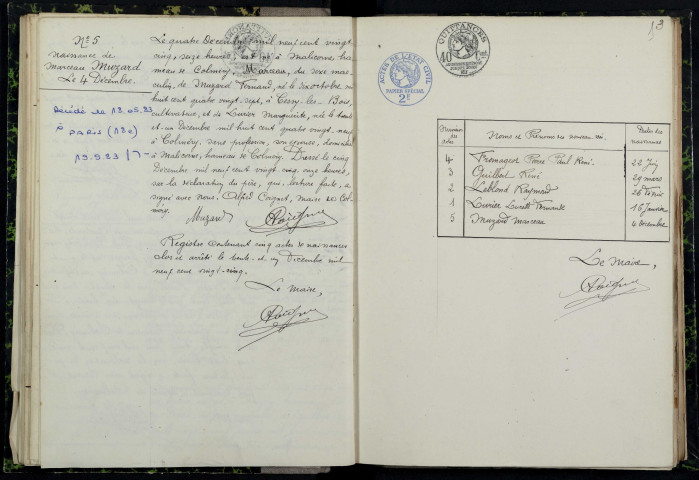 N° 5
naissance de
Marceau Muzard
Le 4 Décembre.
Décédé le 18.05.83
à PARIS (18e)
19.5.83
Le quatre Décembre mil neuf cent vingt
cinq, seize heures, est né à Malcorvo, ha-
meau de Colméry, Marceau, du sexe mas-
culin, de Muzard Fernand, né le six octobre mil
huit cent quatre vingt sept, à Cessy-les-Bois,
cultivateur, et de Luvier Marguerite, née le trente
et un Décembre mil huit cent quatre vingt neuf
à Colméry, sans profession, son épouse, domiciliés
à Malcorvo, hameau de Colméry. Dressé le cinq
Décembre mil neuf cent vingt cinq onze heures,
sur la déclaration du père, qui, lecture faite, a
signé avec nous, Alfred Coignet, maire de Col-
méry.
Muzard
Registre contenant cinq actes de naissances
clos et arrêté le trente et un Décembre mil
neuf cent vingt-cinq.
Le Maire,
13
ACTES DE L'ÉTAT CIVIL
PAPIER SPÉCIAL
2F
QUITTANCES
Numéros des actes
Noms et Prénoms du nouveau-né.
Dates des naissances
4 Fromageot Pierre Paul René 22 Juin
3 René 29 mars
2 Leblond Raymond 26 Février
1 Luvier Lucette Fernande 16 Janvier
5 Muzard Marceau 4 Décembre
Le Maire,